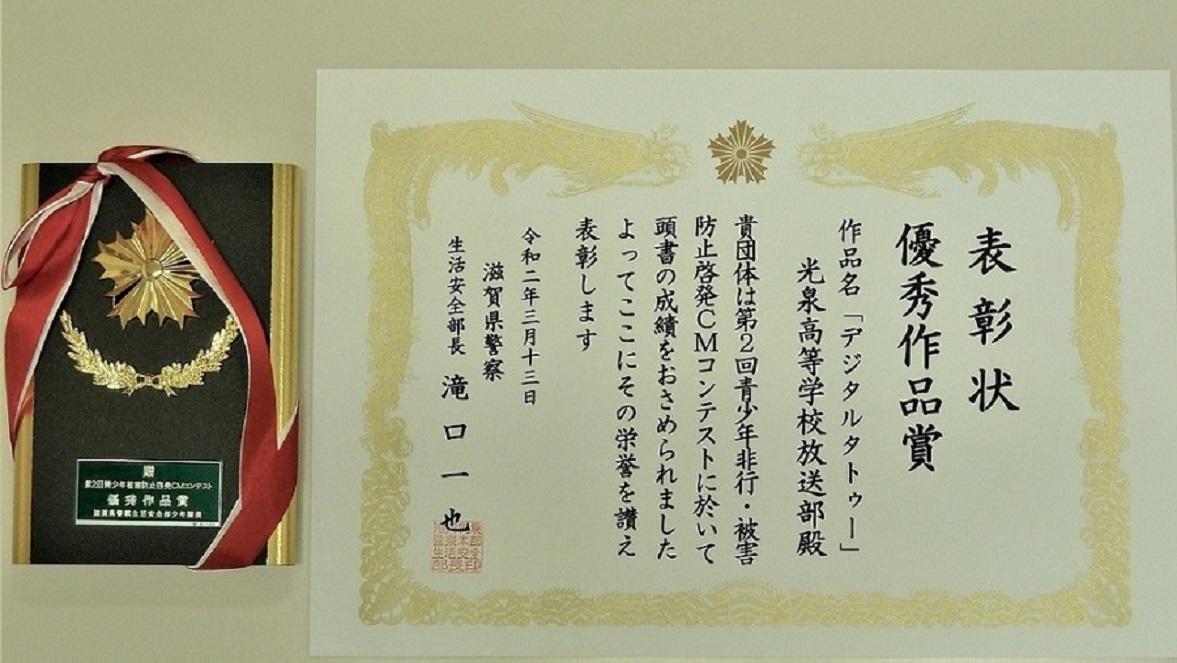 表彰状
優秀作品賞
作品名「デジタルタトゥー」
光泉高等学校放送部殿
貴団体は第2回青少年非行・被害
防止啓発CMコンテストに於いて
頭書の成績をおさめられました
よってここにその栄誉を讃え
表彰します
令和二年三月十三日
滋賀県警察
生活安全部長 滝口一也
贈
第2回青少年被害防止啓発CMコンテスト
優秀作品賞
滋賀県警察生活安全部少年課長